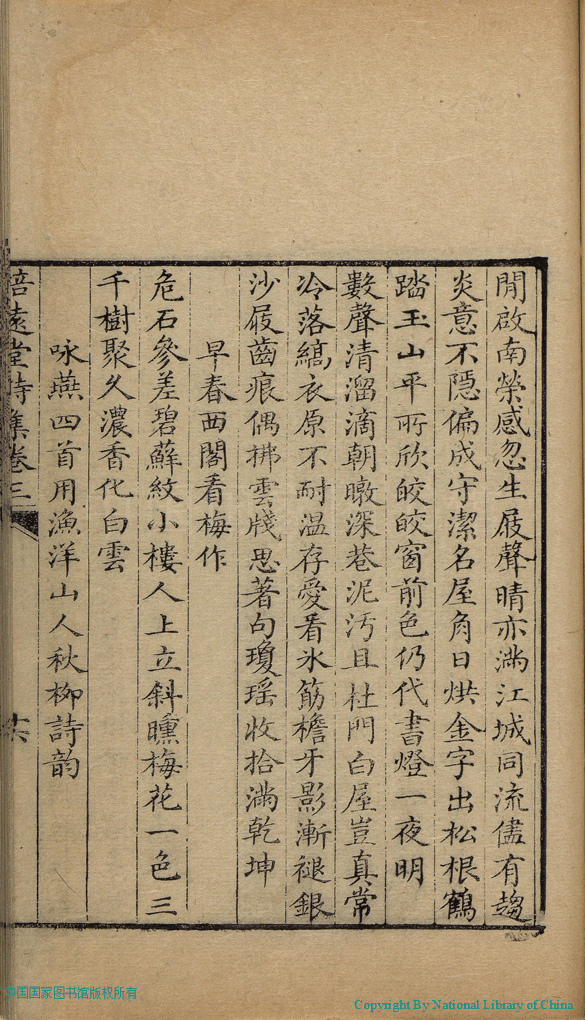 開啟南榮感忽生屐聲晴亦滿江城同流儘有趨
炎意不隱偏成守潔名屋角日烘金字出松根鶴
踏玉山平所欣皎皎窗前色仍代書燈一夜明
數聲清溜滴朝暾深巷泥污且杜門白屋豈真常
冷落縞衣原不耐温存愛看氷筯檐牙影漸褪銀
沙屐齒痕偶拂雲牋思著句瓊瑤收拾滿乾坤
早春西閣看梅作
危石參差碧蘚紋小樓人上立斜曛梅花一色三
千樹聚久濃香化白雲
咏燕四首用漁洋山人秋柳詩韵
培遠堂詩集卷三
中国国家图书馆版权所有
Copyright By National Library of China